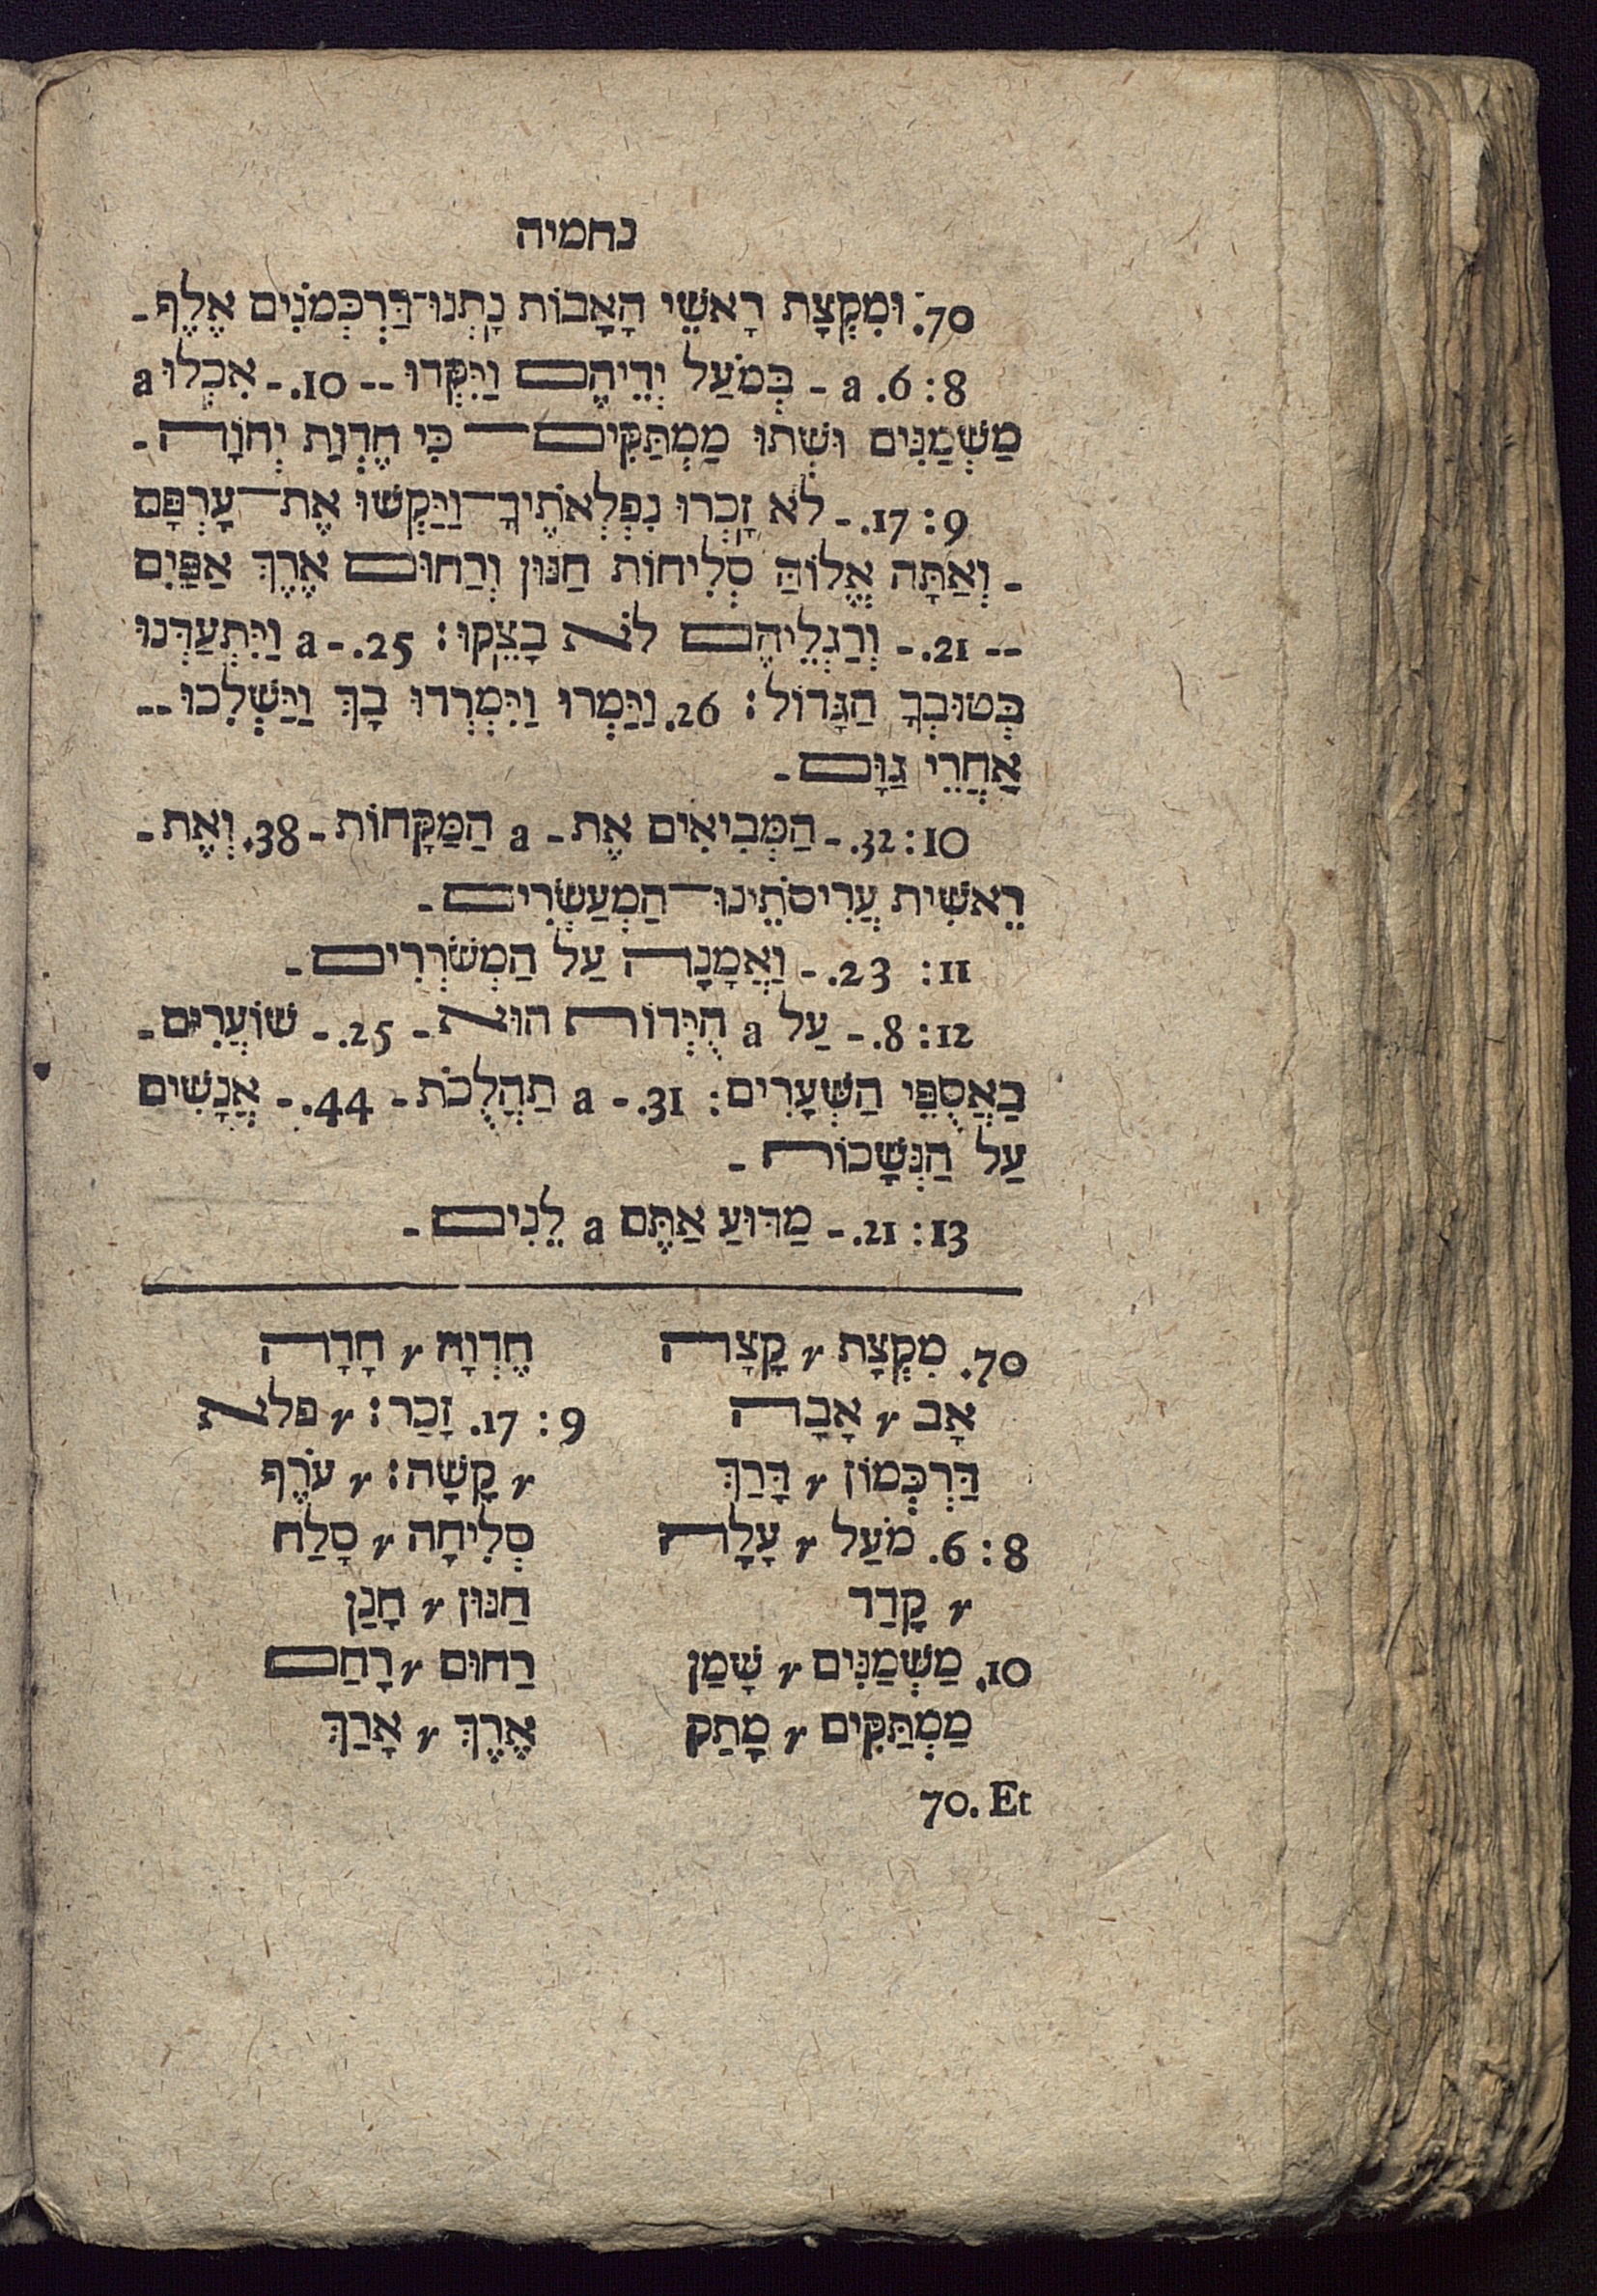 נחמיה
70. וּמִקְצָת רָאשֵׁי הָאָבוֹת נָתְנוּ־דַּרְכְּמֹנִים אֶלֶף -
8 : 6. a - בְּמֹעַל יְדֵיהֶם וַיִּקְּדוּ -- 10. - אִכְלוּ a
מַשְׁמַנִּים וּשְׁתוּ מַמְתַּקִּים— כִּי חֶדְוַת יְהוָֹה -
9 : 17. - לֹא זָכְרוּ נִפְלְאֹתֶיךָ—וַיַּקְשׁוּ אֶת—עָרְפָּם
- וְאַתָּה אֱלוֹהַּ סְלִיחוֹת חַנּוּן וְרַחוּם אֶרֶךְ אַפַּיִם
-- 21. - וְרַגְלֵיהֶם לֹא בָצֵקוּ : 25. - a וַיִּתְעַדְּנוּ
בְּטוּבְךָ הַגָּדוֹל : 26. וַיַּמְרוּ וַיִּמְרְדוּ בָךְ וַיַּשְׁלִכוּ --
אַחֲרֵי גַוָּם -
10 : 32. - הַמְּבִיאִים אֶת - a הַמַּקָּחוֹת - 38. וְאֶת -
רֵאשִׁית עֲרִיסֹתֵינוּ—הַמְעַשְּׂרִים -
11 : 23. - וַאֲמָנָה עַל הַמְשֹׁרְרִים -
12 : 8. - עַל a הֻיְּדוֹת הוּא - 25. - שׁוֹעֲרִים -
בַאֲסֻפֵּי הַשְּׁעָרִים : 31. - a תַהֲלֻכֹת - 44. - אֲנָשִׁים
עַל הַנְּשָׁכוֹת -
13 : 21. - מַדּוּעַ אַתֶּם a לֵנִים -
70. מִקְצָת r קָצָה
אָב r אָבָה
דַּרְכְּמוֹן r דָּרַךְ
8 : 6. מֹעַל r עָלָה
r קָדַד
10. מַשְׁמַנִּים r שָׁמַן
מַמְתַּקִּים r מָתַק
חֶדְוָה r חָדָה
9 : 17. זָכַר : r פלא
r קָשָׁה : r עֹרֶף
סְלִיחָה r סָלַח
חַנּוּן r חָנַן
רַחוּם r רָחַם
אֶרֶךְ r אָרַךְ
70. Et